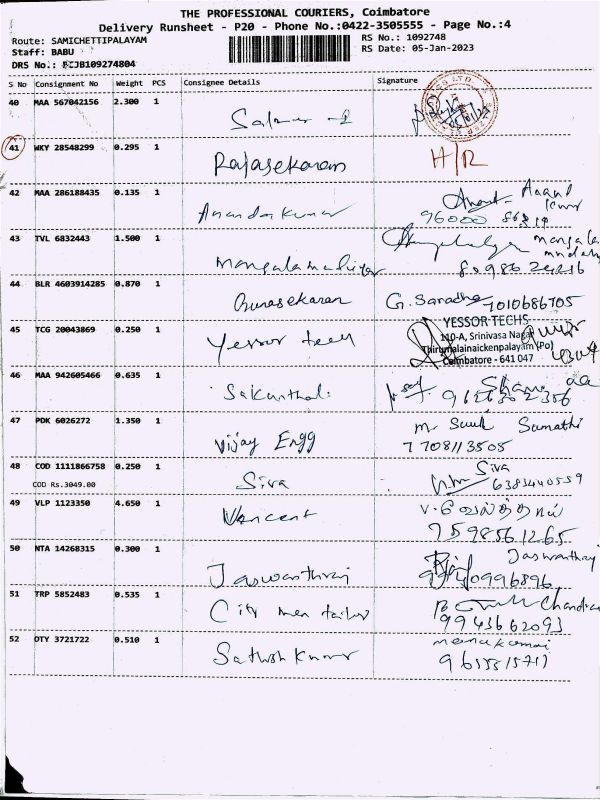 THE PROFESSIONAL COURIERS, Coimbatore
Delivery Runsheet - P20 - Phone No.:0422-3505555 - Page No.:4
Route: SAMICHETTIPALAYAM
RS No.: 1092748
Staff: BABU
RS Date: 05-Jan-2023
DRS No.:
S No Consignment No Weight PCS Consignee Details Signature
40 MAA 567042156 2.300 1
41 WKY 28548299 0.295 1 Rajasekaran H/R
42 MAA 286188435 0.135 1 Anandakumar Anand
43 TVL 6832443 1.500 1 mangala
44 BLR 4603914285 0.870 1 Gunasekaran G. Saradha 7010686705
45 TCG 20043869 0.250 1 Yessor tech
YESSOR TECHS
110-A, Srinivasa Nagar
Thirumalainaickenpalayam (Po)
Coimbatore - 641 047
46 MAA 942605466 0.635 1 Sakunthala
47 PDK 6026272 1.350 1 Vijay Engg Sumathi
7708113505
48 COD 1111866758 0.250 1 Siva Siva
COD Rs.3049.00 6383440559
49 VLP 1123350 4.650 1 Vencent
7598561265
50 NTA 14268315 0.300 1 Jaswanthraj Jaswanthraj
9940996896
51 TRP 5852483 0.535 1 City men tailor Chandra
9943662093
52 OTY 3721722 0.510 1 Sathish Kumar